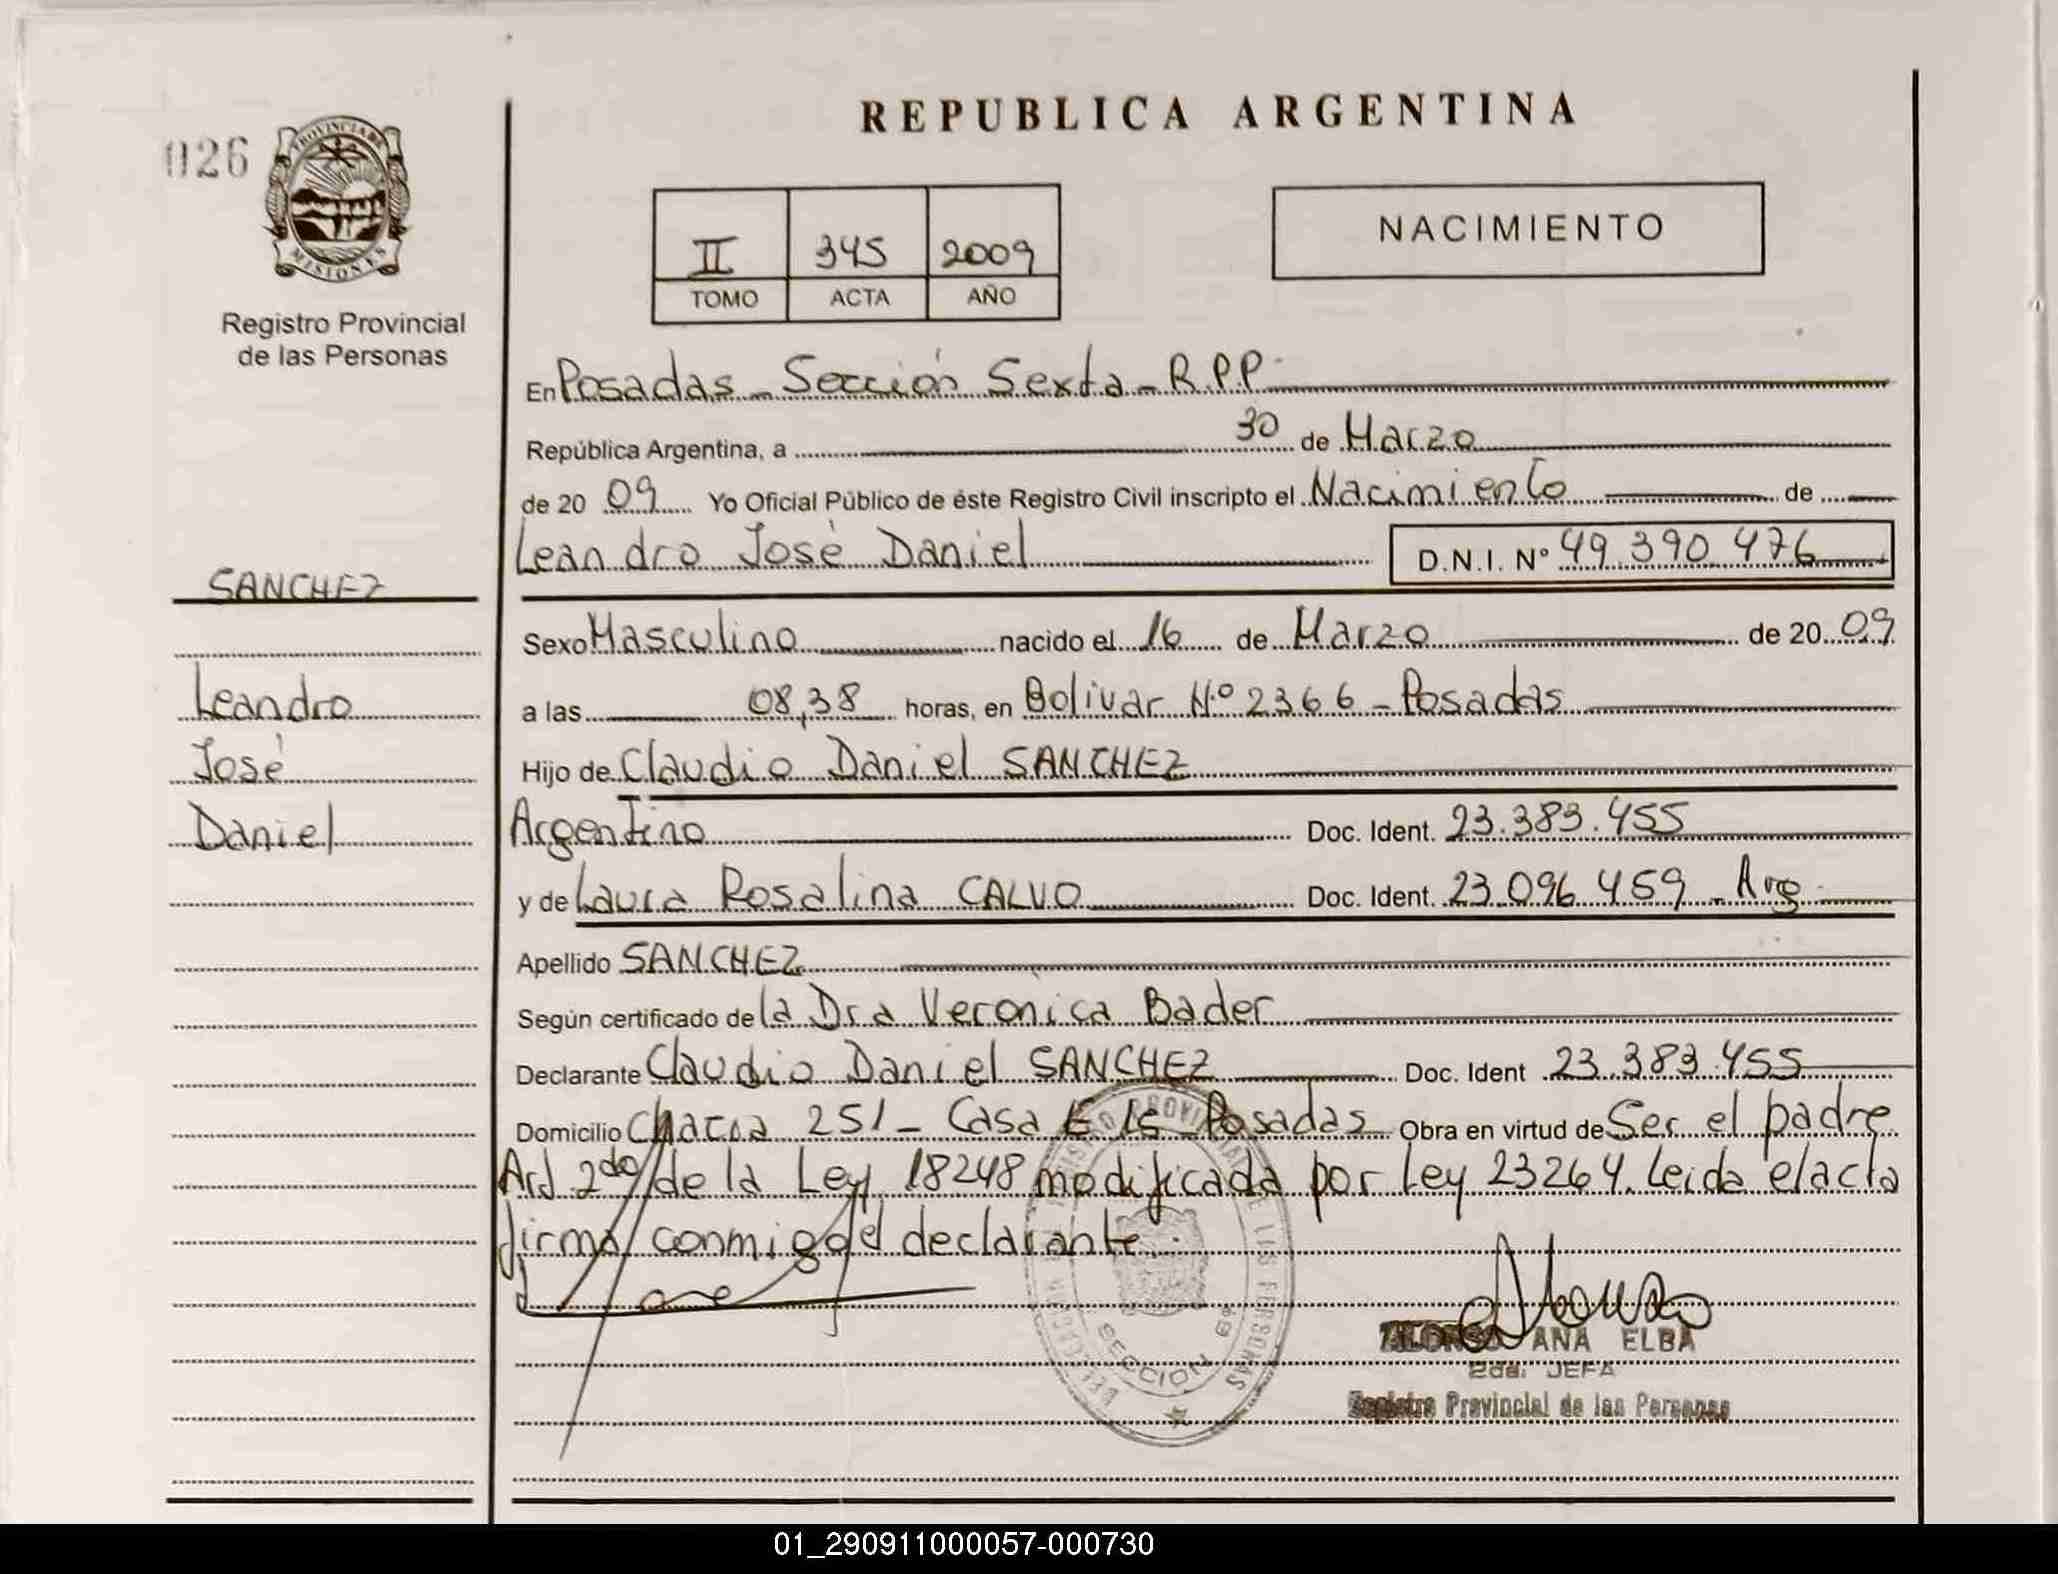 REPUBLICA ARGENTINA
026
PROVINCIA DE
MISIONES
Registro Provincial
de las Personas
II 345 2009
TOMO ACTA AÑO
NACIMIENTO
En Posadas - Sección Sexta - R.P.P.
República Argentina, a 30 de Marzo
de 20 09 Yo Oficial Público de éste Registro Civil inscripto el Nacimiento de
Leandro José Daniel D.N.I. Nº 49.390.476
SANCHEZ
Leandro
José
Daniel
Sexo Masculino nacido el 16 de Marzo de 20 09
a las 08,38 horas, en Bolivar Nº 2366 - Posadas
Hijo de Claudio Daniel SANCHEZ
Argentino Doc. Ident. 23.383.455
y de Laura Rosalina CALVO Doc. Ident. 23.096.459 - Arg.
Apellido SANCHEZ
Según certificado de la Dra Veronica Bader
Declarante Claudio Daniel SANCHEZ Doc. Ident 23.383.455
Domicilio Chacra 251 - Casa Posadas Obra en virtud de Ser el padre
Art 2do de la Ley 18248 modificada por Ley 23264. Leida el acta
firma conmigo el declarante.
SECCION 6ª
ANA ELBA
2da. JEFA
Registro Provincial de las Personas
01_290911000057-000730